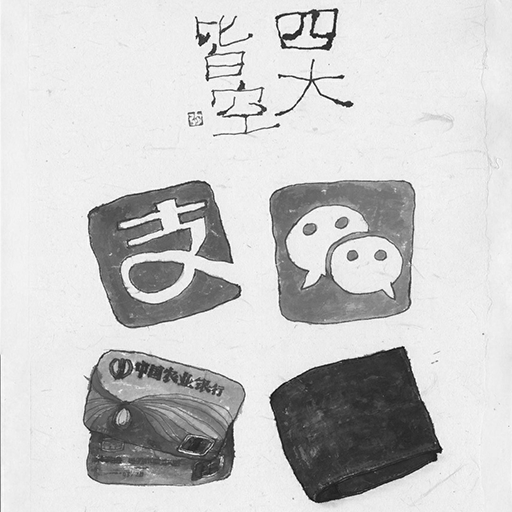 四大
皆空
支
中国农业银行